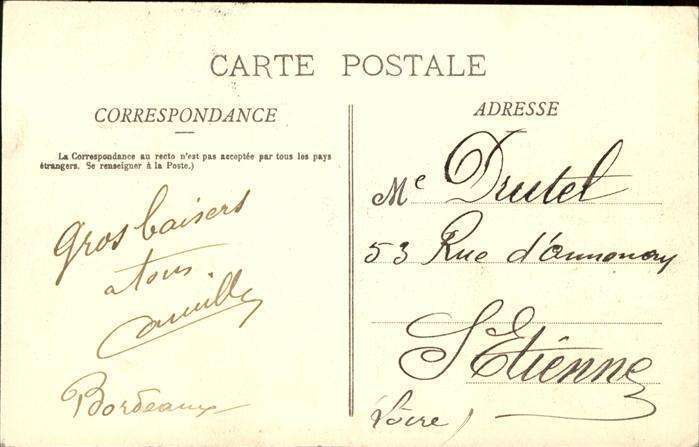 CARTE POSTALE
CORRESPONDANCE
La Correspondance au recto n'est pas acceptée par tous les pays
étrangers. Se renseigner à la Poste.)
Gros baisers
a tous.
Camille
Bordeaux
ADRESSE
Me Drutel
53 Rue d'Annonay
St Etienne
(Loire)